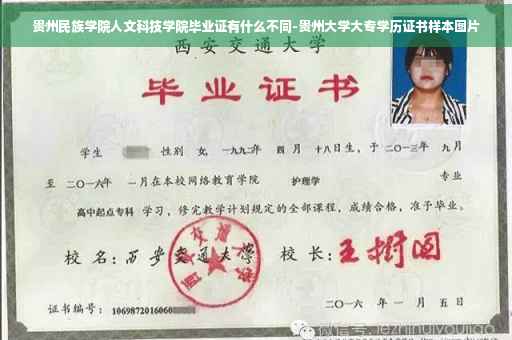 贵州民族学院人文科技学院毕业证有什么不同-贵州大学大专学历证书样本图片
西安交通大学
毕业证书
学生 性别 女,一九九二年 四月 十八日生,于 二〇一三年 九月
至 二〇一六年 一月在本校网络教育学院 护理学 专业
高中起点专科 学习,修完教学计划规定的全部课程,成绩合格,准予毕业。
校 名:西安交通大学 校 长:王树国
西安交通大学
证书编号:1069872016060
二〇一六 年 一 月 五 日
微信号:jezhinuiyoujiao